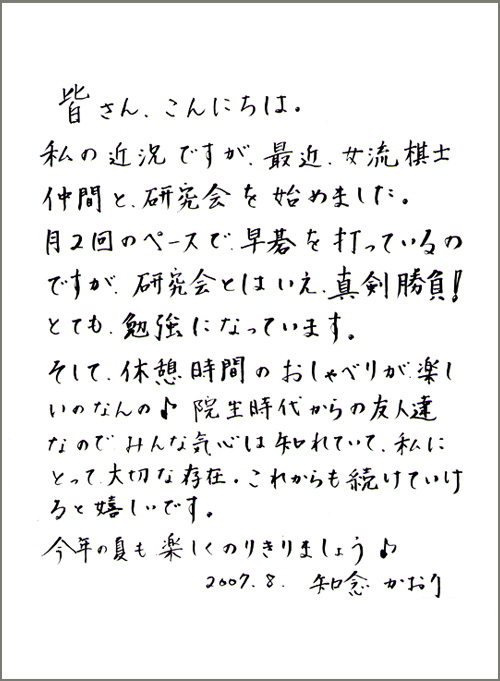 皆さん、こんにちは。
私の近況ですが、最近、女流棋士
仲間と、研究会を始めました。
月2回のペースで、早碁を打っているの
ですが、研究会とはいえ、真剣勝負!
とても、勉強になっています。
そして、休憩時間のおしゃべりが、楽し
いのなんの♪ 院生時代からの友人達
なので、みんな気心は知れていて、私に
とって、大切な存在。これからも続けていけ
ると嬉しいです。
今年の夏も楽しくのりきりましょう♪
2007.8. 知念かおり